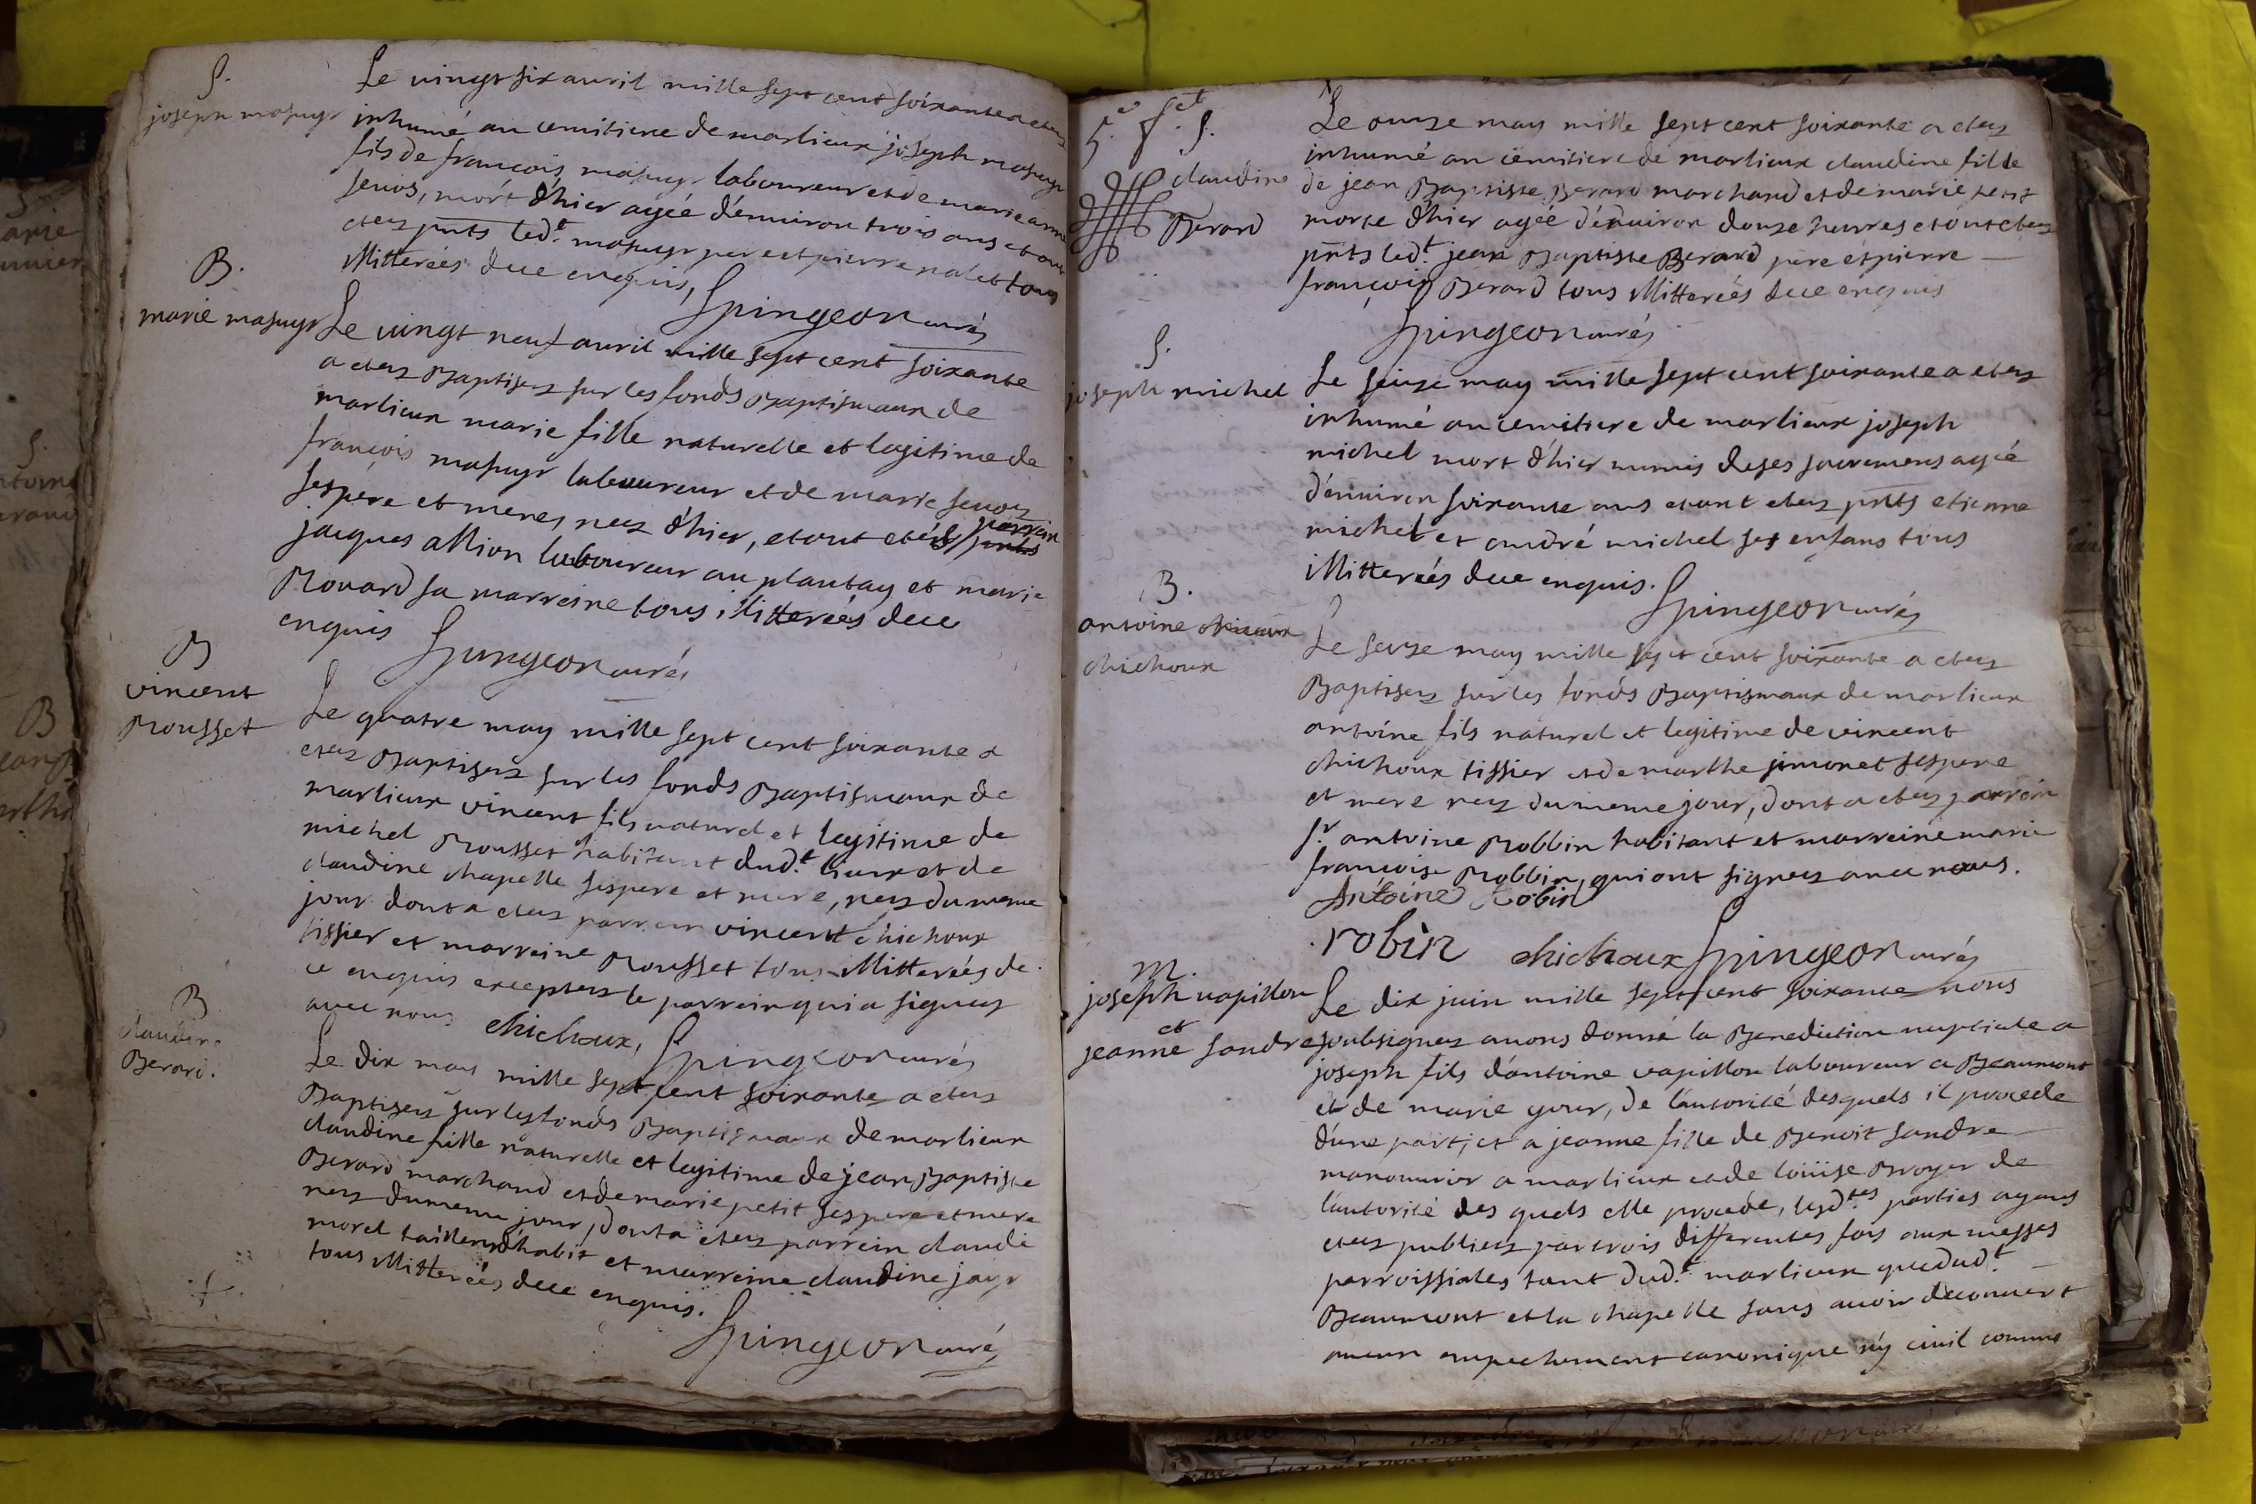 S.
joseph masuyr
Le vingt six auril mille sept cent soixante a etez
inhumé au cemitiere de marlieux joseph masuyr
fils de françois masuyr laboureur et de marie anne
seuos, mort d'hier ageé d'enuiron trois ans et ont
etez pnts led.t masuyr pere et pierre nalet tous
illitereés dece enquis, Spingeon curés
B.
marie masuyr
Le vingt neuf auril mille sept cent soixante
a etez Baptisez sur les fonds Baptismaux de
marlieux marie fille naturelle et legitime de
françois masuyr laboureur et de marie seuos
ses pere et meres nez d'hier, et ont etés parrein
jacques allion laboureur au plantay et marie
Rouard sa marreine tous illitereés dece
enquis Spingeon curés
B
vincent
Rousset
Le quatre may mille sept cent soixante a
etez Baptisez sur les fonds Baptismaux de
marlieux vincent fils naturel et legitime de
michel Rousset habitant dud.t lieux et de
claudine chapelle ses pere et mere, nez du meme
jour dont a etez parrein vincent chichoux
tissier et marreine Rousset tous illitereés de
ce enquis exceptez le parrein qui a signez
auec nous chichoux, Spingeon curés
B
claudine
Berard.
Le dix may mille sept cent soixante a etez
Baptisez sur les fonds Baptismaux de marlieux
claudine fille naturelle et legitime de jean Baptiste
Berard marchand et de marie petit ses pere et mere
nez du meme jour, dont a etez parrein claude
morel tailleur d'habit et marreine claudine jayr
tous illitereés dece enquis.
Spingeon curés
5.e f.et S.
claudine
Berard
Le onze may mille sept cent soixante a etez
inhumé au cemitiere de marlieux claudine fille
de jean Baptiste Berard marchand et de marie petit
morte d'hier ageé d'enuiron douze heures et ont etez
pnts led.t jean Baptiste Berard pere et pierre
françois Berard tous illitereés dece enquis
Spingeon curés
S.
joseph michel
Le seize may mille sept cent soixante a etez
inhumé au cemitiere de marlieux joseph
michel mort d'hier munis de ses sacremens ageé
d'enuiron soixante ans et ont etez pnts etienne
michel et andré michel ses enfans tous
illitereés dece enquis. Spingeon curés
B.
antoine
chichoux
Le seize may mille sept cent soixante a etez
Baptisez sur les fonds Baptismaux de marlieux
antoine fils naturel et legitime de vincent
chichoux tissier et de marthe jimonet ses pere
et mere nez du meme jour, dont a etez parrein
s.r antoine Robbin habitant et marreine marie
françoise Robbin, qui ont signez auec nous.
Antoine Robin
robin chichoux Spingeon curés
m.
joseph vapillon
et
jeanne sandre
Le dix juin mille sept cent soixante nous
soubsignez auons donné la Benediction nuptiale a
joseph fils d'antoine vapillon laboureur a Beaumont
et de marie gour, de l'autorité desquels il procede
d'une part, et a jeanne fille de Benoit sandre
manouurier a marlieux et de loüise Broyer de
l'autorité des quels elle procede, lesd.tes parties ayans
etez publiez par trois differentes fois aux messes
parroissiales tant dud.t marlieux que dud.t
Beaumont et la chapelle sans auoir decouuert
aucun empechement canonique n'y ciuil comme